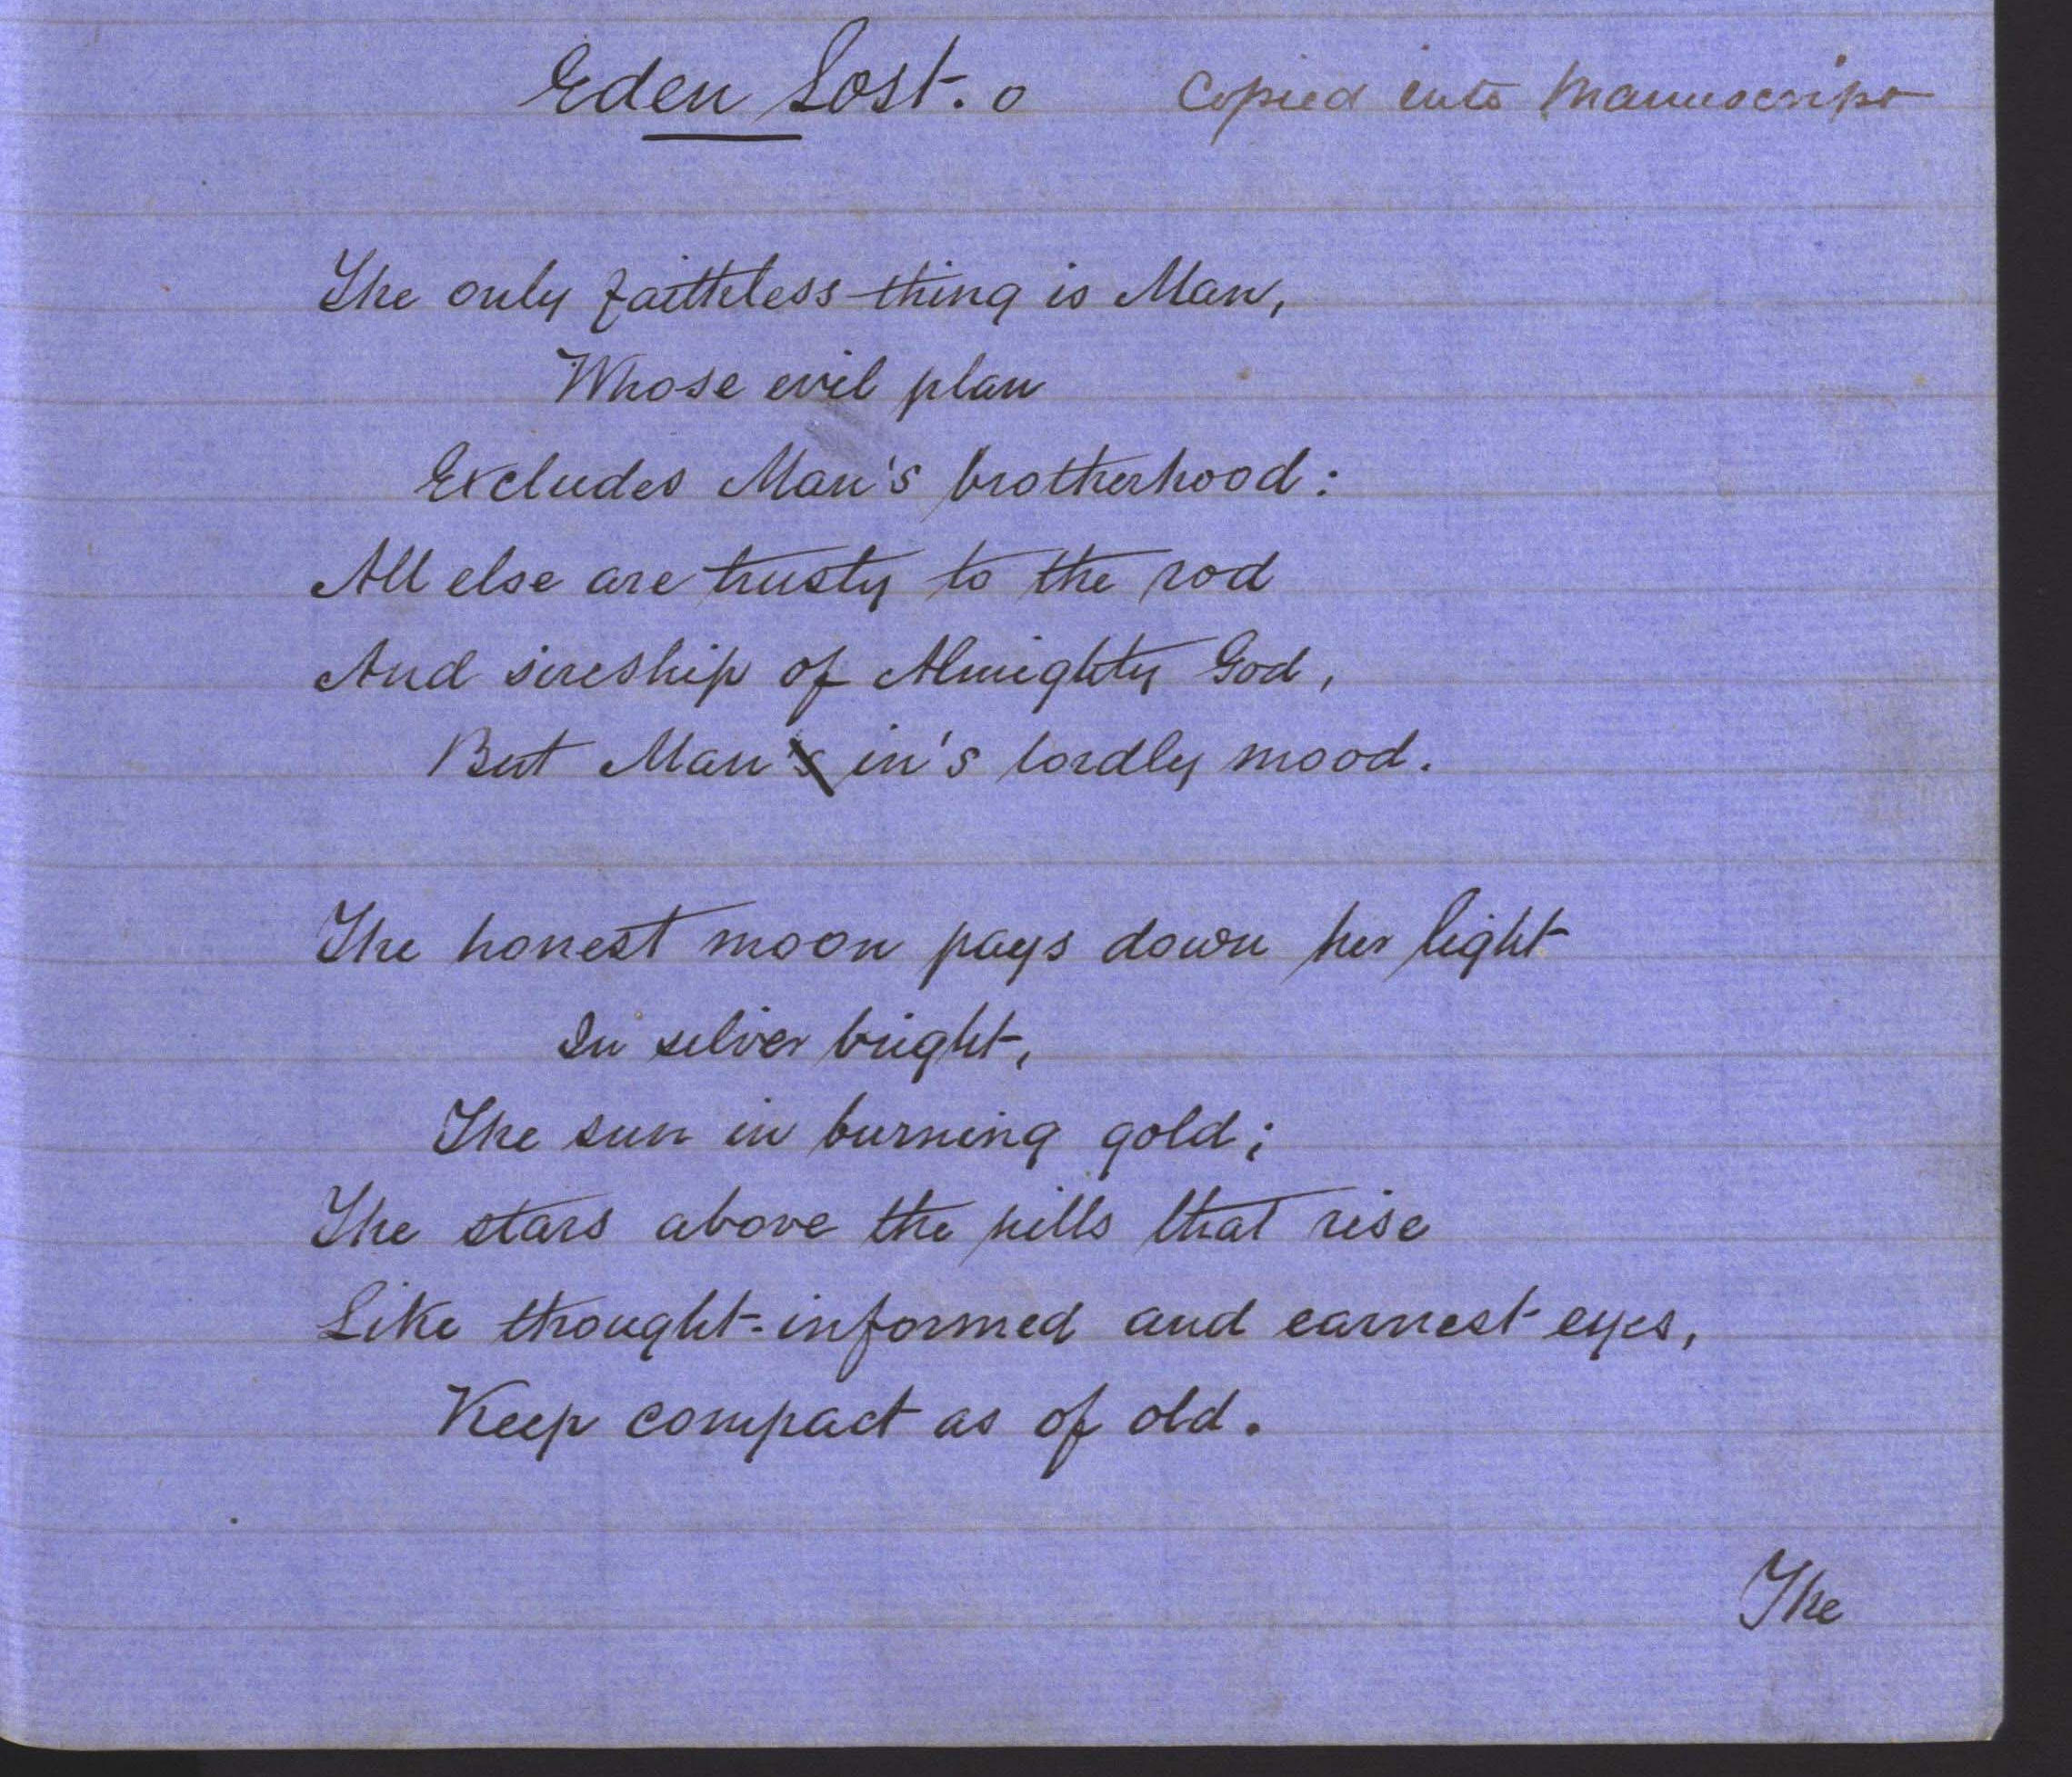 Eden Lost. o Copied into Manuscript
The only faithless thing is Man,
Whose evil plan
Excludes Man's brotherhood:
All else are trusty to the rod
And sireship of Almighty God,
But Man's in's lordly mood.
The honest moon pays down her light
In silver bright,
The sun in burning gold;
The stars above the hills that rise
Like thought-informed and earnest eyes,
Keep compact as of old.
The